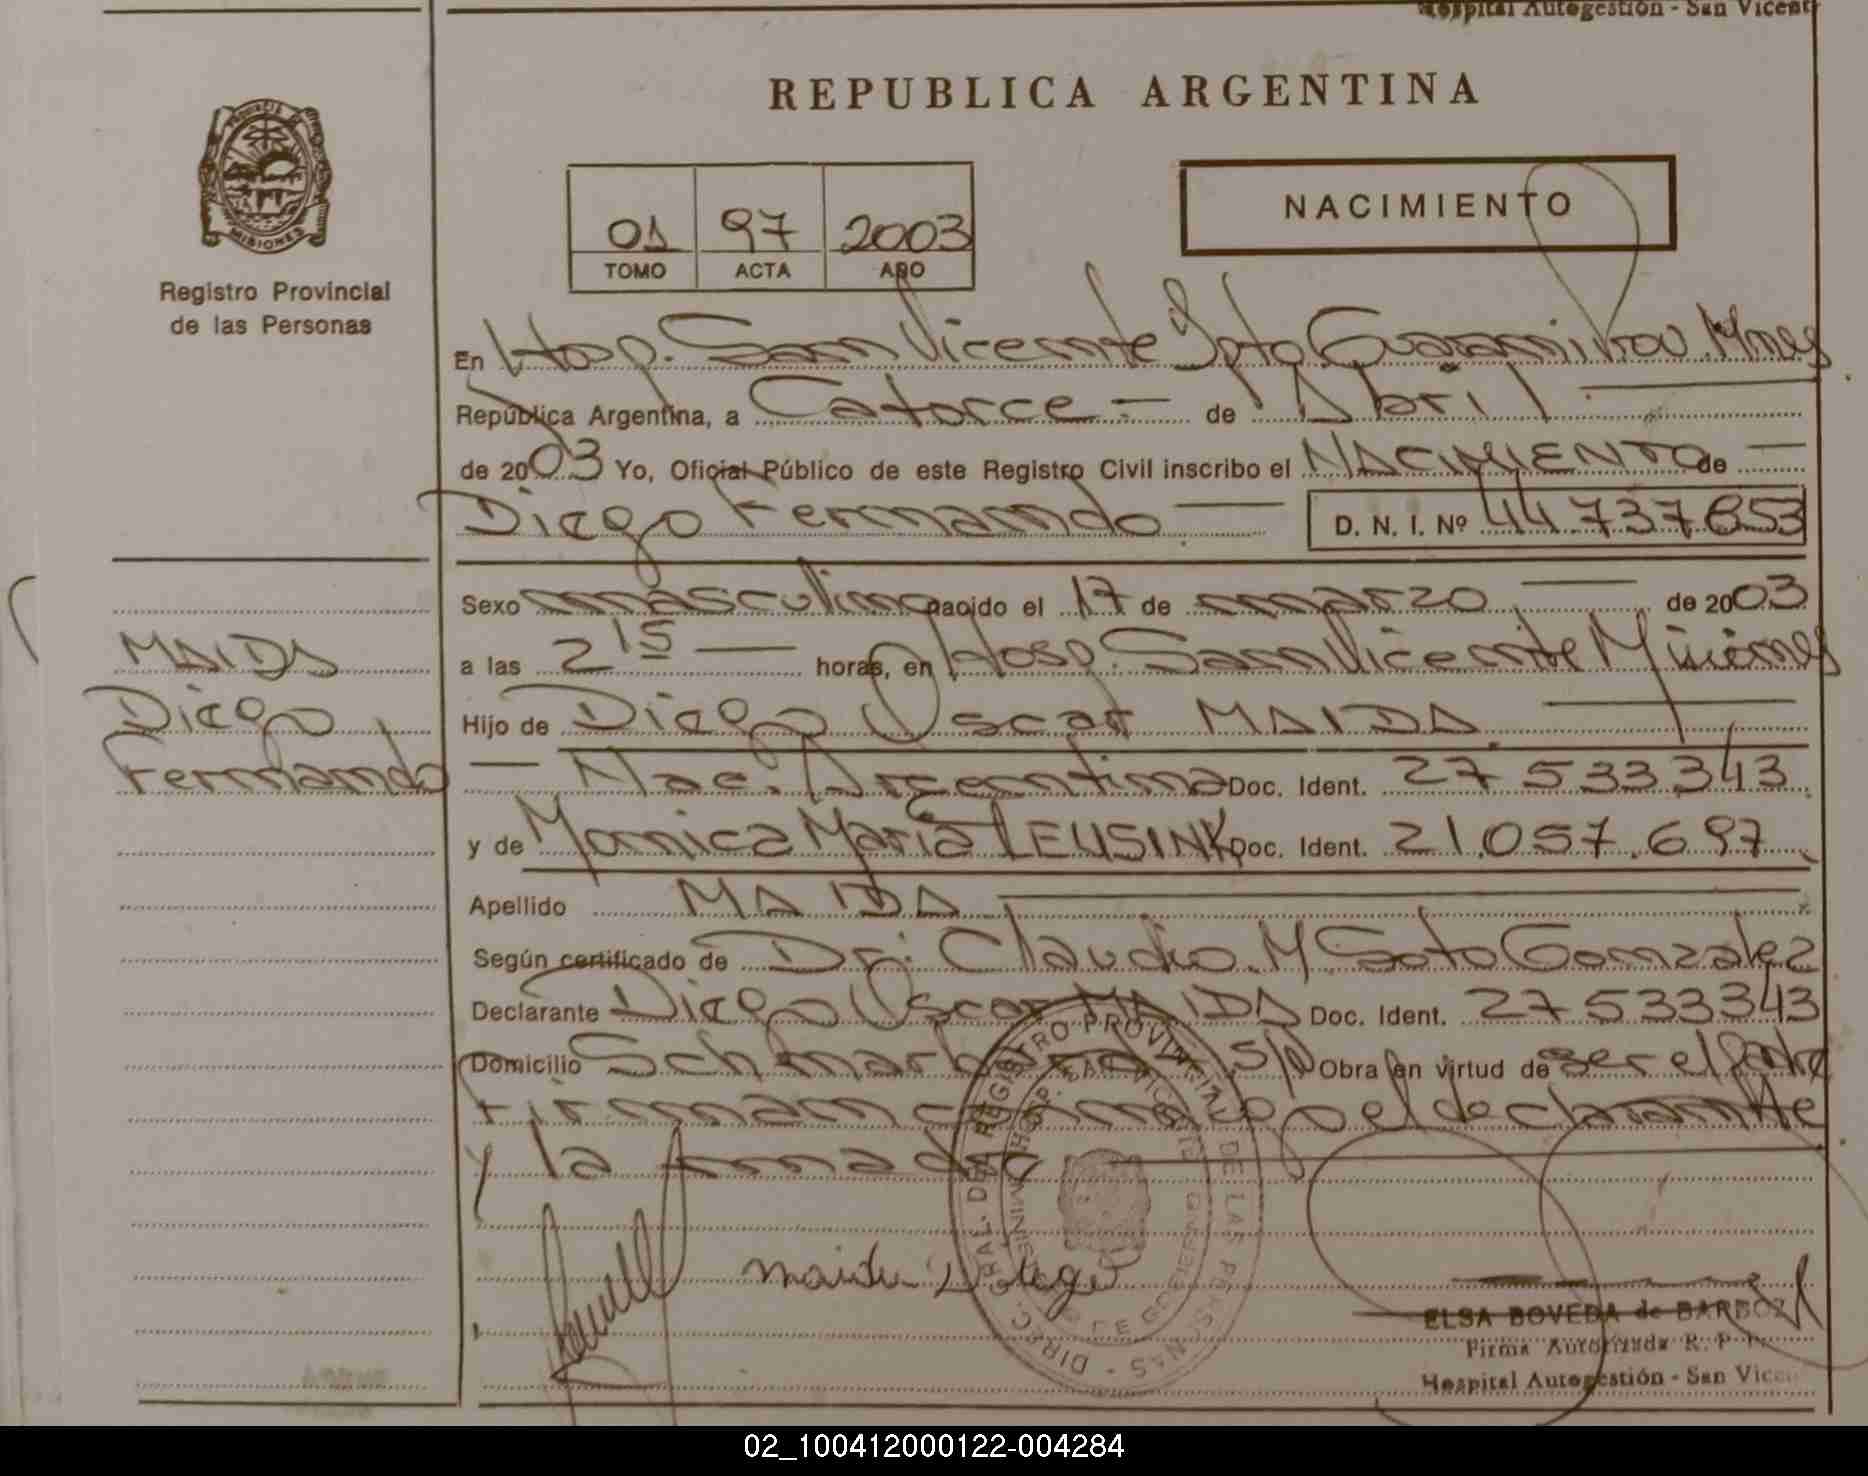 Hospital Autogestión - San Vicente
REPUBLICA ARGENTINA
PROVINCIA DE
MISIONES
Registro Provincial
de las Personas
01 97 2003
TOMO ACTA AÑO
NACIMIENTO
En Hosp. San Vicente Dpto Guaraní Prov. Mnes
República Argentina, a Catorce — de Abril —
de 2003 Yo, Oficial Público de este Registro Civil inscribo el NACIMIENTO de —
Diego Fernando — D. N. I. Nº 44737853
Sexo masculino nacido el 17 de marzo — de 2003
a las 2 15 — horas, en Hosp. San Vicente Misiones
Hijo de Diego Oscar MAIDA —
— Nac. Argentina Doc. Ident. 27 533 343
y de Monica Maria LEUSINK Doc. Ident. 21.057.697
Apellido MAIDA —
Según certificado de Dr: Claudio. M Soto Gonzalez
Declarante Diego Oscar MAIDA Doc. Ident. 27 533343
Domicilio S/N Obra en virtud de ser el Padre
Firman conmigo el declarante
y la —
MAIDA
Diego
Fernando
maida Diego
DIREC. GRAL. DEL REGISTRO PROVINCIAL DE LAS PERSONAS
HOSP. SAN VICENTE
ELSA BOVEDA de BARBOZA
Firma Autorizada R. P. P.
Hospital Autogestión - San Vicente
02_100412000122-004284